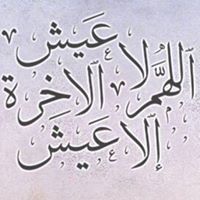 اللهُمَّ لا عيش
إلا عيش
الاخِرة